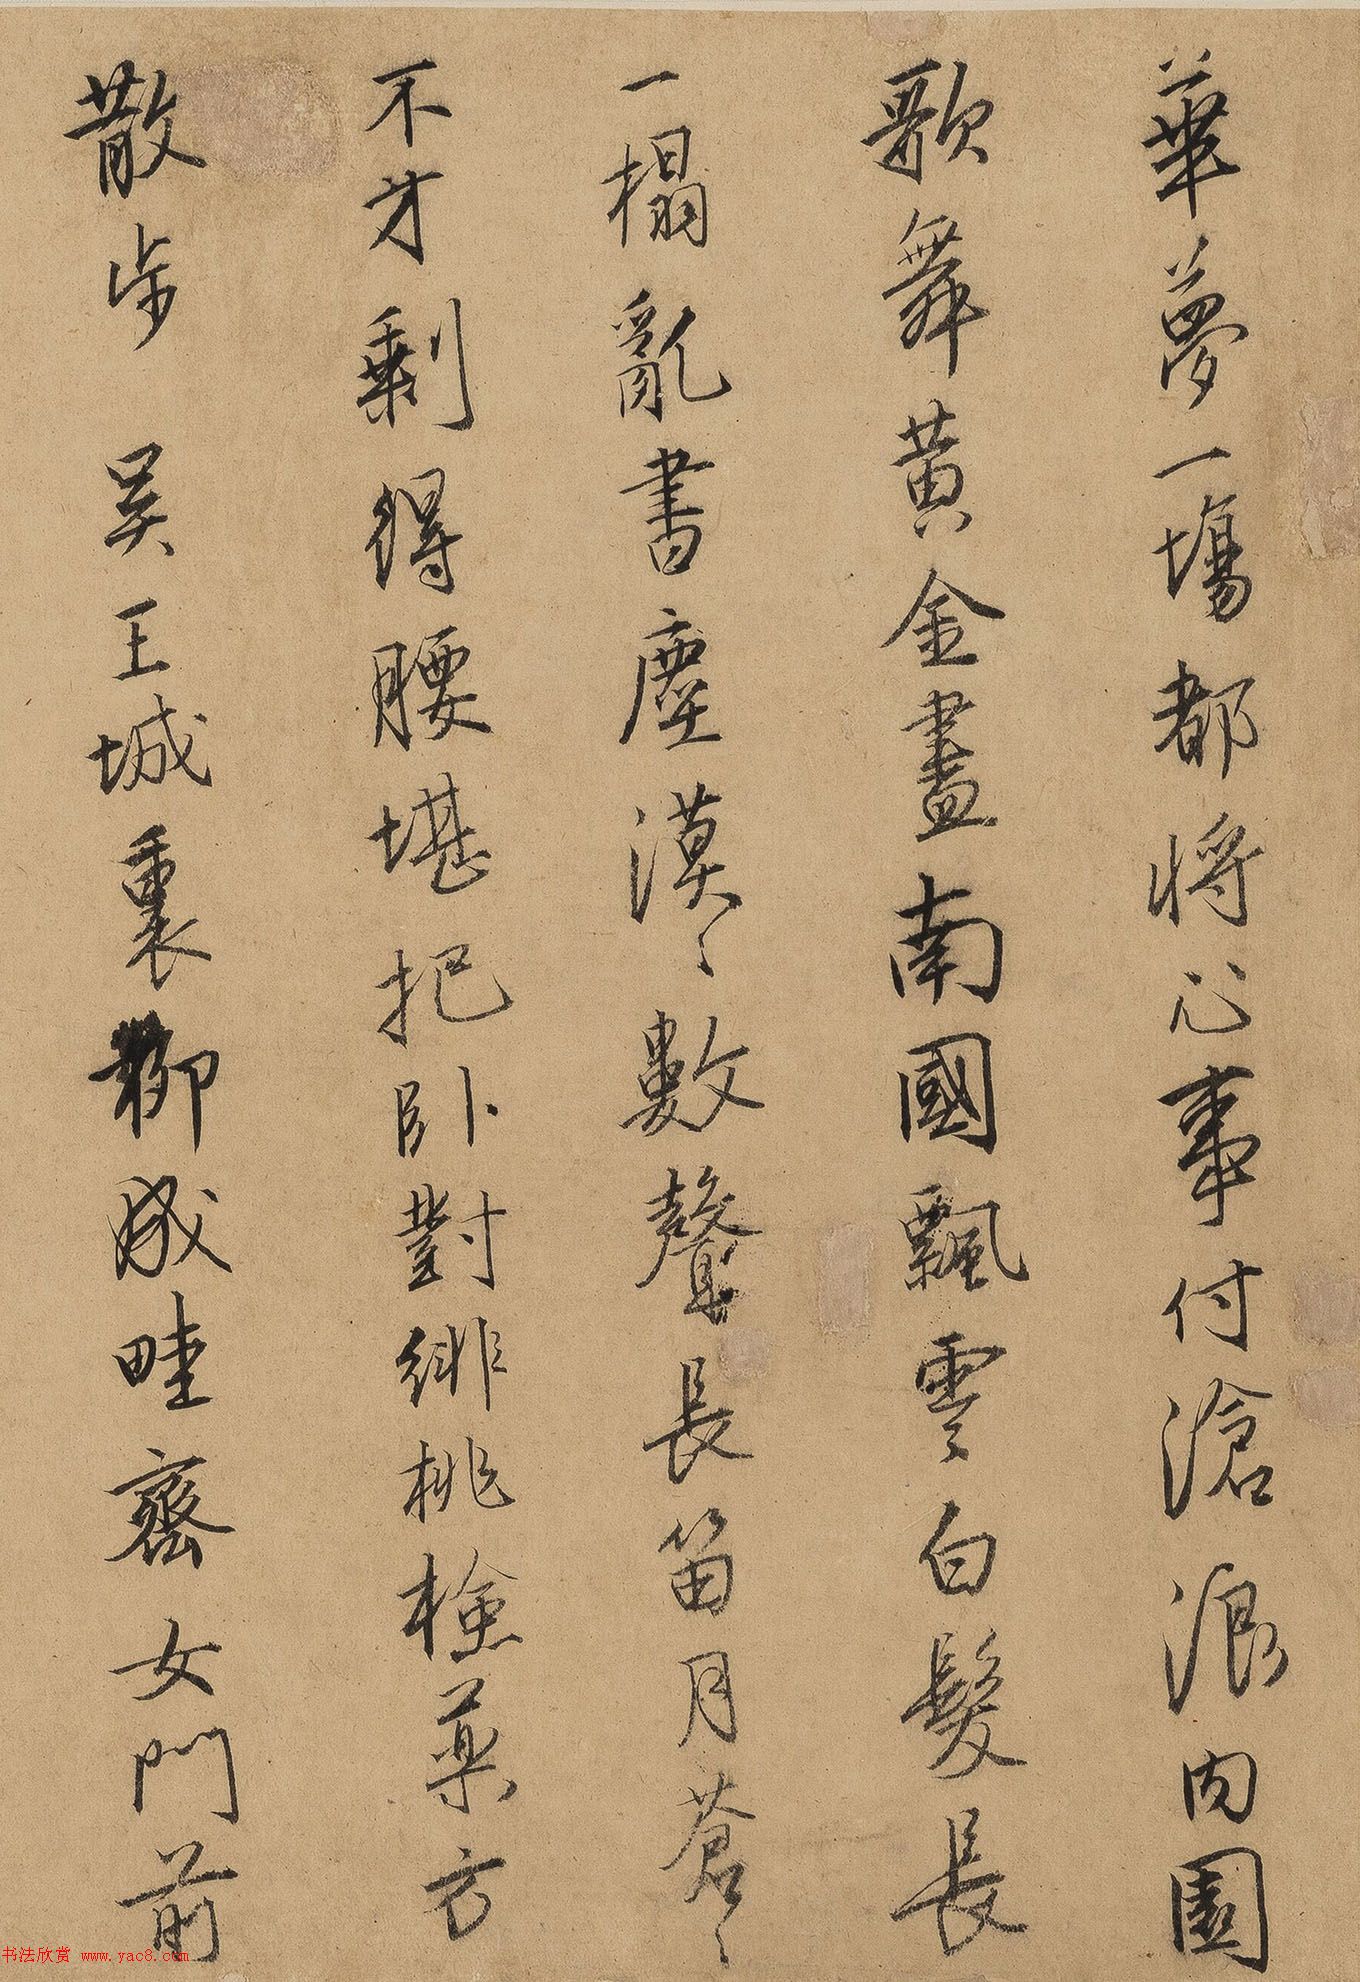 華夢一場都將心事付滄浪內園
歌舞黃金盡南國飄零白髮長
一榻亂書塵漠〻數聲長笛月蒼〻
不才剩得腰堪把臥對緋桃檢藥方
散步吳王城裏柳成畦齊女門前
书法欣赏 www.yac8.com